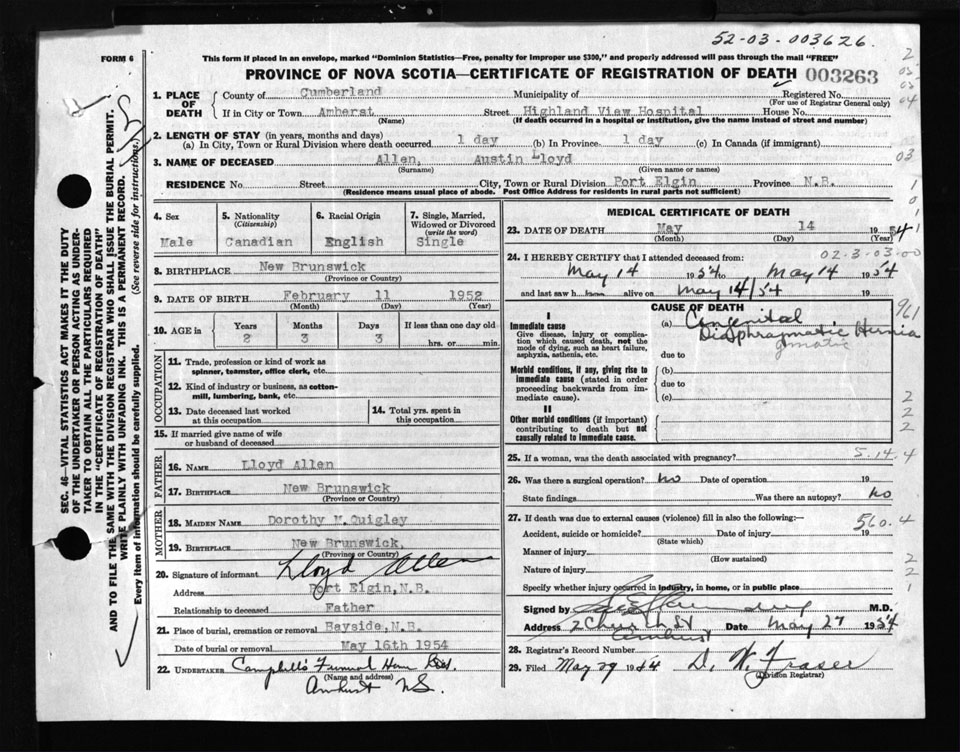 52-03-003626.
FORM 6
This form if placed in an envelope, marked "Dominion Statistics—Free, penalty for improper use $300," and properly addressed will pass through the mail "FREE"
PROVINCE OF NOVA SCOTIA—CERTIFICATE OF REGISTRATION OF DEATH 003263
1. PLACE OF DEATH
County of Cumberland Municipality of Registered No.
(For use of Registrar General only)
If in City or Town Amherst Street Highland View Hospital House No.
(Name) (If death occurred in a hospital or institution, give the name instead of street and number)
2. LENGTH OF STAY (in years, months and days)
(a) In City, Town or Rural Division where death occurred 1 day (b) In Province 1 day (c) In Canada (if immigrant)
3. NAME OF DECEASED Allen, Austin Lloyd
(Surname) (Given name or names)
RESIDENCE No. Street City, Town or Rural Division Port Elgin Province N.B.
(Residence means usual place of abode. Post Office Address for residents in rural parts not sufficient)
4. Sex
Male
5. Nationality
(Citizenship)
Canadian
6. Racial Origin
English
7. Single, Married, Widowed or Divorced
(write the word)
Single
8. BIRTHPLACE New Brunswick
(Province or Country)
9. DATE OF BIRTH February 11 1952
(Month) (Day) (Year)
10. AGE in
Years Months Days If less than one day old
2 3 3 hrs. or min.
OCCUPATION
11. Trade, profession or kind of work as
spinner, teamster, office clerk, etc.
12. Kind of industry or business, as cotton-
mill, lumbering, bank, etc.
13. Date deceased last worked
at this occupation
14. Total yrs. spent in
this occupation
15. If married give name of wife
or husband of deceased
FATHER
16. NAME Lloyd Allen
17. BIRTHPLACE New Brunswick
(Province or Country)
MOTHER
18. MAIDEN NAME Dorothy M. Quigley
19. BIRTHPLACE New Brunswick,
(Province or Country)
20. Signature of informant Lloyd Allen
Address Port Elgin, N.B.
Relationship to deceased Father
21. Place of burial, cremation or removal Bayside, N.B.
Date of burial or removal May 16th 1954
22. UNDERTAKER Campbell's Funeral Home Ltd.
(Name and address)
Amherst N.S.
MEDICAL CERTIFICATE OF DEATH
23. DATE OF DEATH May 14 1954
(Month) (Day) (Year)
24. I HEREBY CERTIFY that I attended deceased from: 02-3-03-00
May 14 1954 to May 14 1954
and last saw h him alive on May 14/54
CAUSE OF DEATH
I
Immediate cause
Give disease, injury or complica-
tion which caused death, not the
mode of dying, such as heart failure,
asphyxia, asthenia, etc.
(a) Congenital
Diaphragmatic Hernia
gmatic
due to
Morbid conditions, if any, giving rise to
immediate cause (stated in order
proceeding backwards from im-
mediate cause).
(b)
due to
(c)
II
Other morbid conditions (if important)
contributing to death but not
causally related to immediate cause.
961
25. If a woman, was the death associated with pregnancy? 5.14.4
26. Was there a surgical operation? No Date of operation 19
State findings Was there an autopsy? No
27. If death was due to external causes (violence) fill in also the following:—
560.4
Accident, suicide or homicide? Date of injury 19
(State which)
Manner of injury
(How sustained)
Nature of injury
Specify whether injury occurred in industry, in home, or in public place
Signed by M.D.
Address 2 Church St Date May 27 1954
Amherst
28. Registrar's Record Number
29. Filed May 29 1954 D. W. Fraser
(Division Registrar)
SEC. 46—VITAL STATISTICS ACT MAKES IT THE DUTY
OF THE UNDERTAKER OR PERSON ACTING AS UNDER-
TAKER TO OBTAIN ALL THE PARTICULARS REQUIRED
IN THE "CERTIFICATE OF REGISTRATION OF DEATH"
AND TO FILE THE SAME WITH THE DIVISION REGISTRAR WHO SHALL ISSUE THE BURIAL PERMIT.
WRITE PLAINLY WITH UNFADING INK. THIS IS A PERMANENT RECORD.
Every item of information should be carefully supplied. (See reverse side for instructions.)